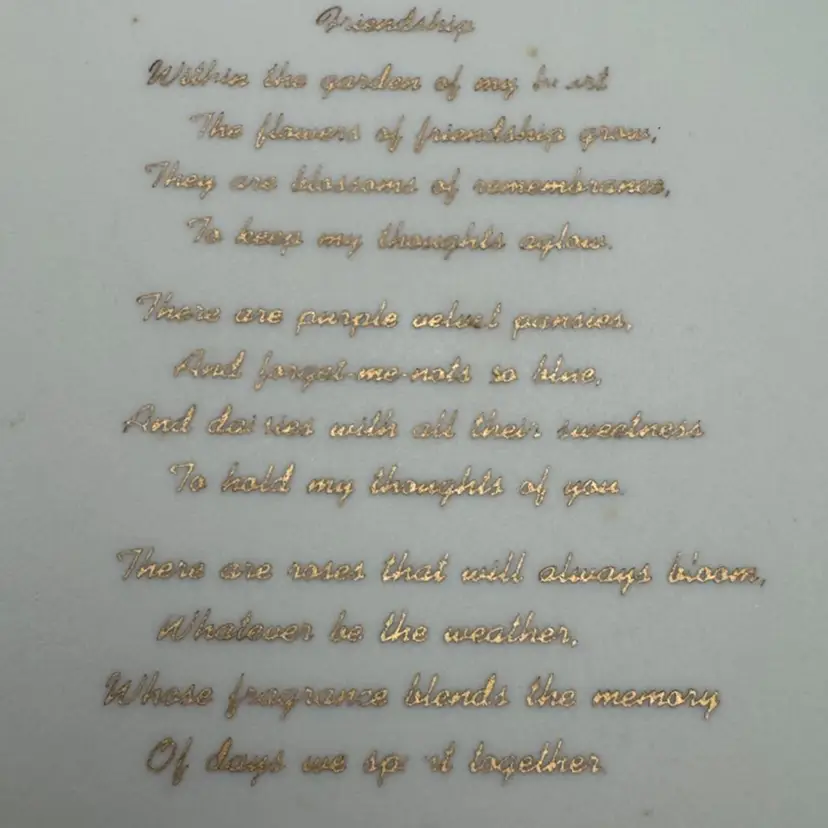 Friendship
Within the garden of my heart
The flowers of friendship grow;
They are blossoms of remembrance,
To keep my thoughts aglow.
There are purple velvet pansies,
And forget-me-nots so blue,
And daisies with all their sweetness
To hold my thoughts of you.
There are roses that will always bloom,
Whatever be the weather,
Whose fragrance blends the memory
Of days we spent together